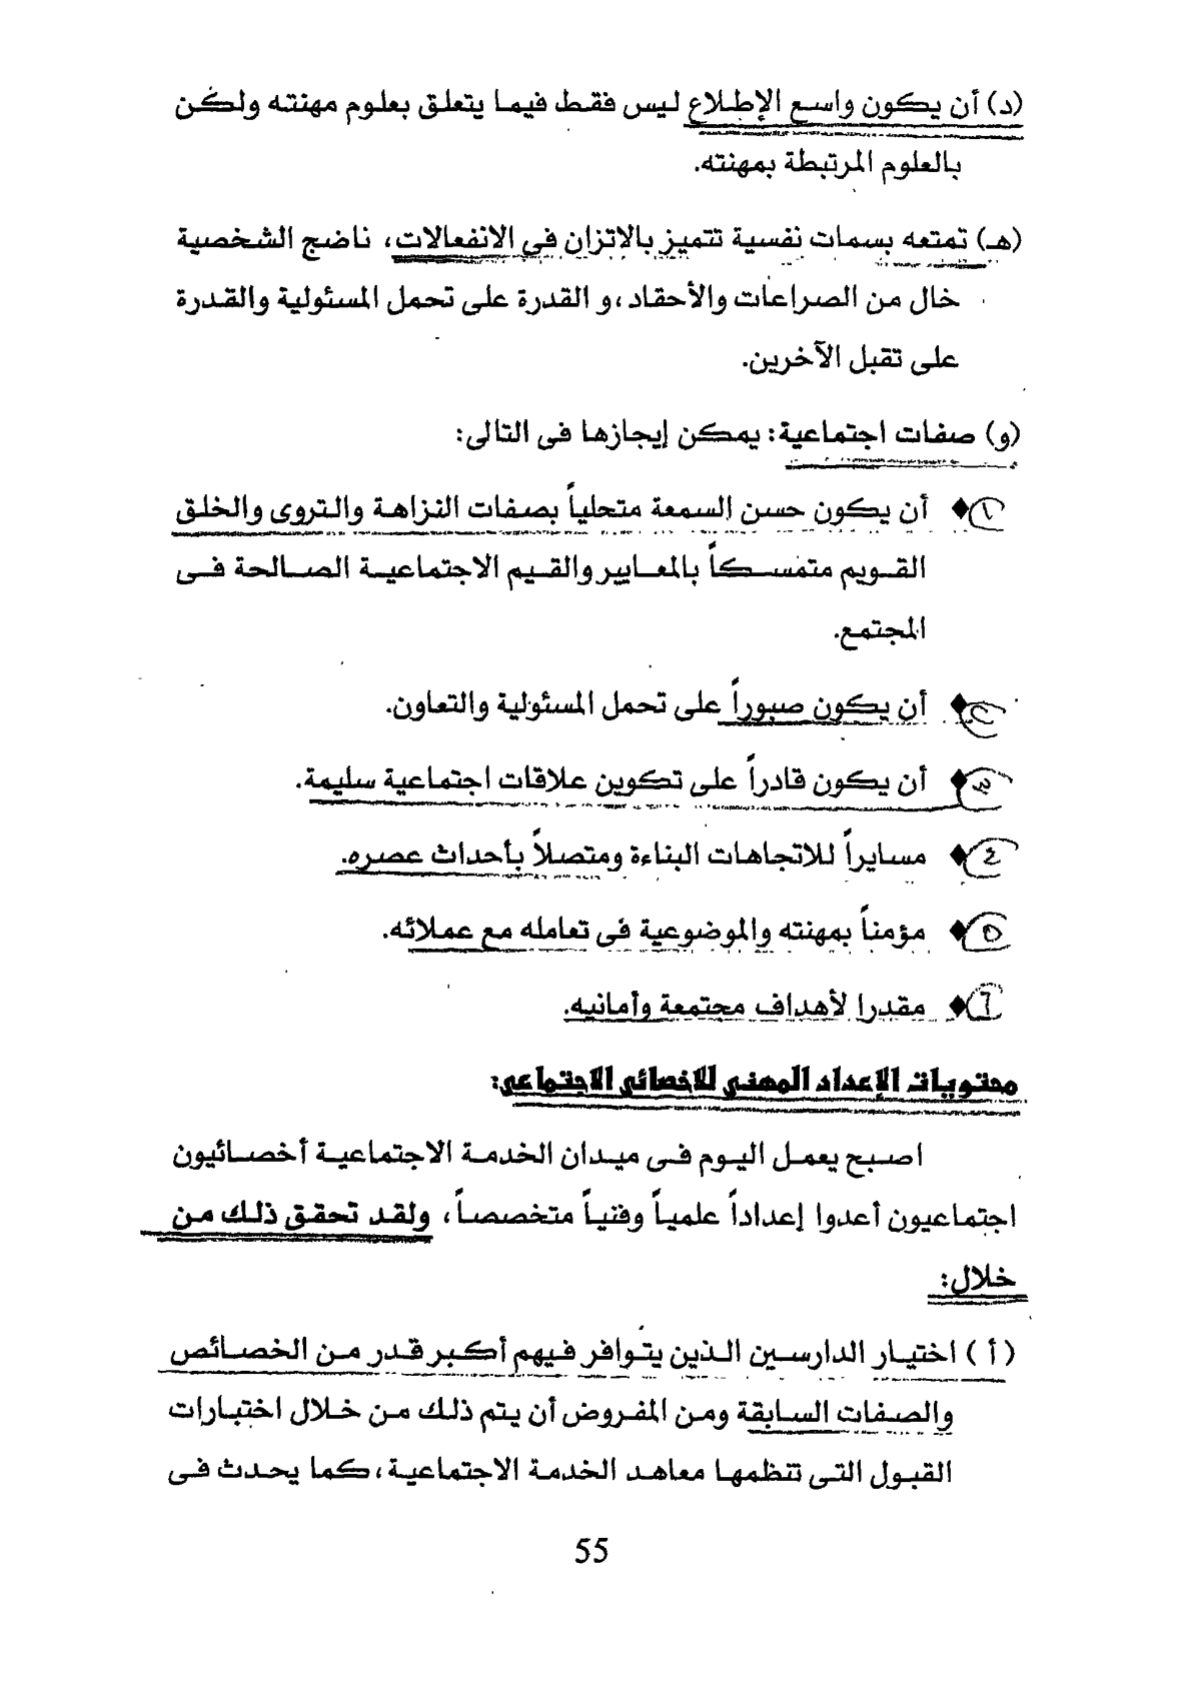 (د) أن يكون واسع الإطلاع ليس فقط فيما يتعلق بعلوم مهنته ولكن
بالعلوم المرتبطة بمهنته.
(هـ) تمتعه بسمات نفسية تتميز بالاتزان فى الانفعالات، ناضج الشخصية
خال من الصراعات والأحقاد، و القدرة على تحمل المسئولية والقدرة
على تقبل الآخرين.
(و) صفات اجتماعية: يمكن إيجازها فى التالى:
١ ♦ أن يكون حسن السمعة متحلياً بصفات النزاهة والتروى والخلق
القويم متمسكاً بالمعايير والقيم الاجتماعية الصالحة فى
المجتمع.
٢ ♦ أن يكون صبوراً على تحمل المسئولية والتعاون.
٣ ♦ أن يكون قادراً على تكوين علاقات اجتماعية سليمة.
٤ ♦ مسايراً للاتجاهات البناءة ومتصلاً بأحداث عصره.
٥ ♦ مؤمناً بمهنته والموضوعية فى تعامله مع عملائه.
٦ ♦ مقدرا لأهداف مجتمعة وأمانيه.
محتويات الإعداد المهنى للاخصائى الاجتماعى:
اصبح يعمل اليوم فى ميدان الخدمة الاجتماعية أخصائيون
اجتماعيون أعدوا إعداداً علمياً وفنياً متخصصاً، ولقد تحقق ذلك من
خلال:
( أ ) اختيار الدارسين الذين يتوافر فيهم أكبر قدر من الخصائص
والصفات السابقة ومن المفروض أن يتم ذلك من خلال اختبارات
القبول التى تنظمها معاهد الخدمة الاجتماعية، كما يحدث فى
55